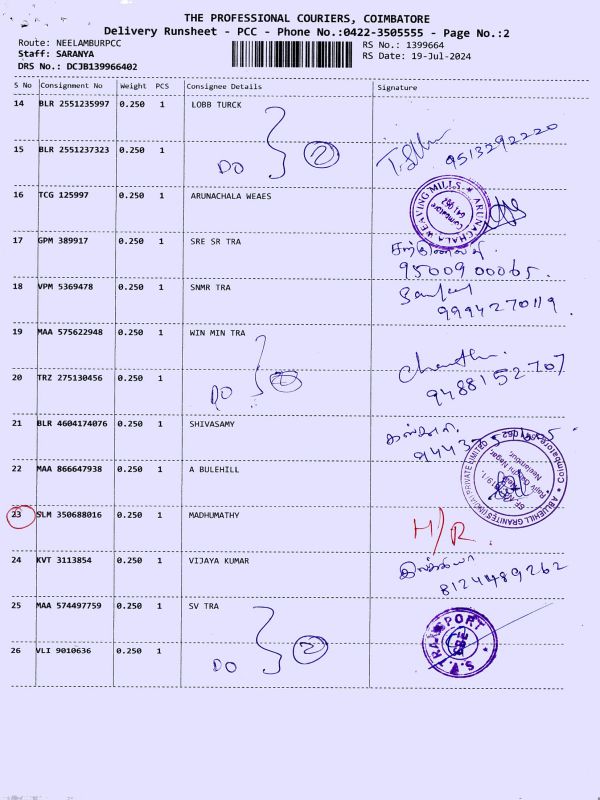 THE PROFESSIONAL COURIERS, COIMBATORE
Delivery Runsheet - PCC - Phone No.:0422-3505555 - Page No.:2
Route: NEELAMBURPCC
RS No.: 1399664
Staff: SARANYA
RS Date: 19-Jul-2024
DRS No.: DCJB139966402
S No Consignment No Weight PCS Consignee Details Signature
14 BLR 2551235997 0.250 1 LOBB TURCK
15 BLR 2551237323 0.250 1 DO 2 9513292220
16 TCG 125997 0.250 1 ARUNACHALA WEAES
ARUNACHALA WEAVING MILLS Coimbatore 641 062
17 GPM 389917 0.250 1 SRE SR TRA
95009 00065.
18 VPM 5369478 0.250 1 SNMR TRA
9994270119.
19 MAA 575622948 0.250 1 WIN MIN TRA
20 TRZ 275130456 0.250 1 DO 2 9488152707
21 BLR 4604174076 0.250 1 SHIVASAMY
22 MAA 866647938 0.250 1 A BULEHILL
23 SLM 350688016 0.250 1 MADHUMATHY H/R.
24 KVT 3113854 0.250 1 VIJAYA KUMAR
8124489262
25 MAA 574497759 0.250 1 SV TRA
S.V. TRANSPORT
26 VLI 9010636 0.250 1 DO 2